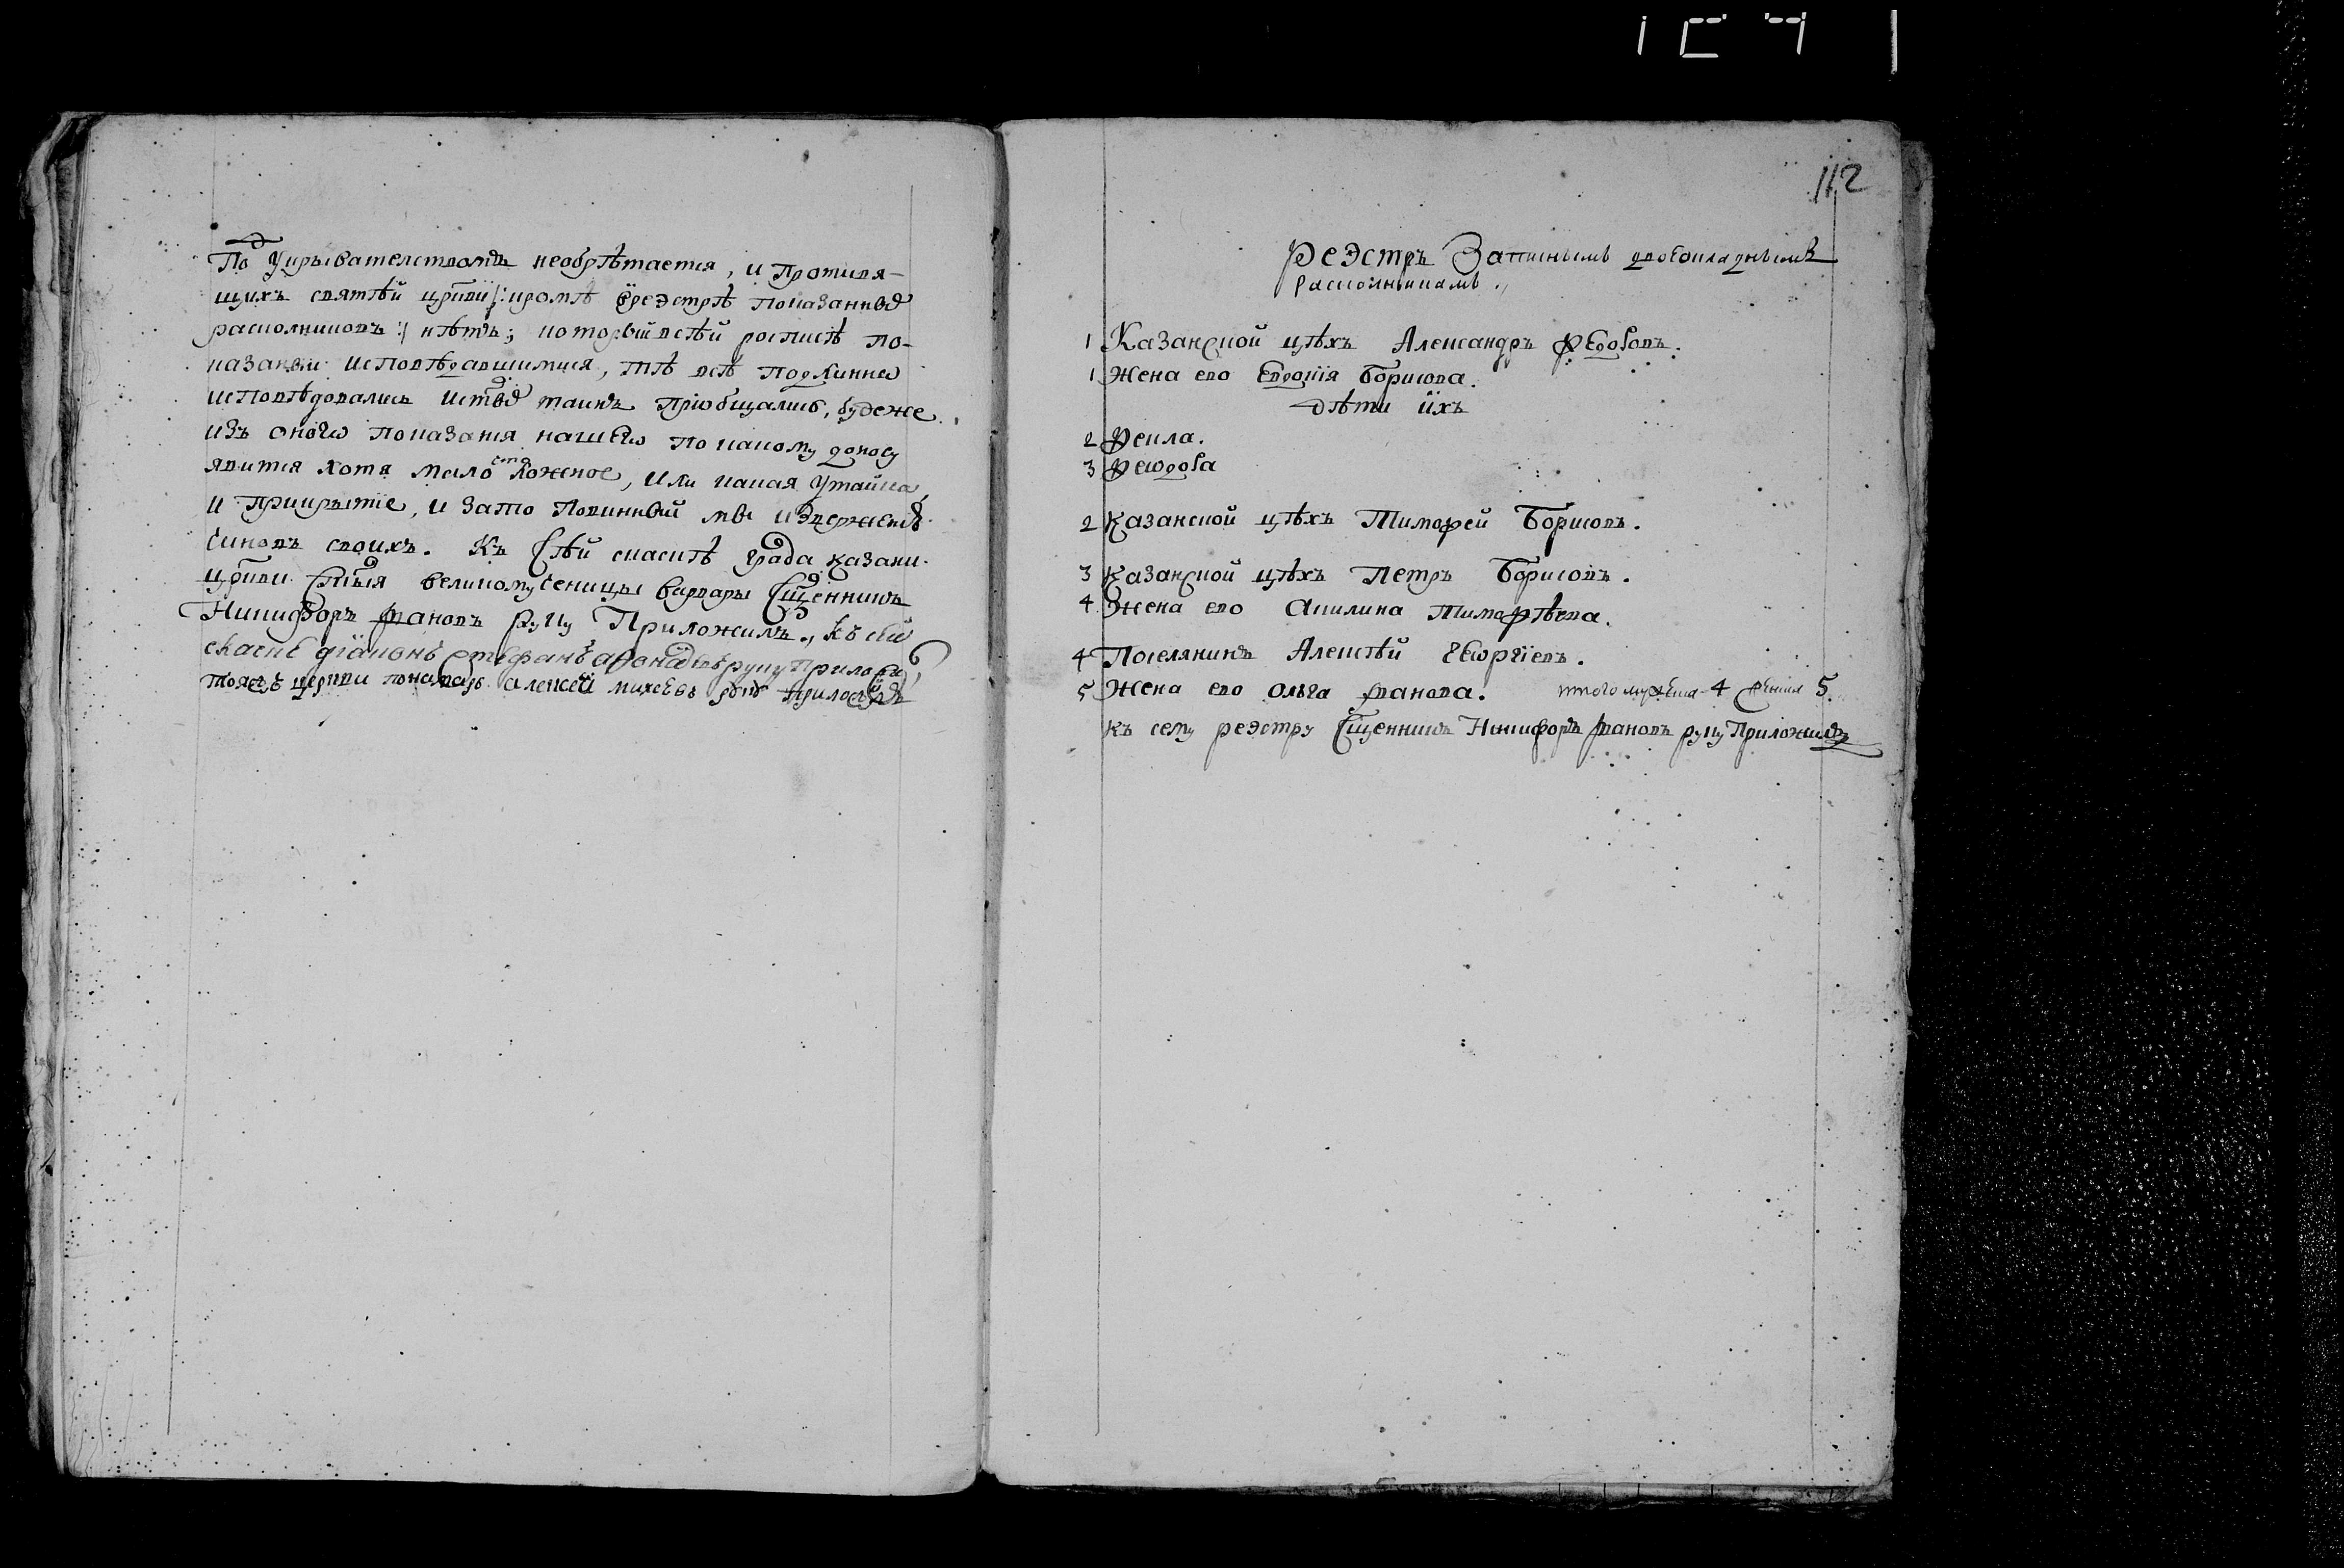 Под укрывателствомъ необрѣтается, и противя-
щихъ святѣй цркви /: кромѣ в реэстрѣ показанныхъ
расколниковъ :/ нѣтъ; которыи в сѣй росписѣ по-
казаны исповѣдавшимися, тѣ всѣ подлинно
исповѣдовались и стыхъ таинъ приобщались, буде же
изъ оного показания нашего по какому доносу
явится хотя мало что ложное, или какая утайка,
и прикрытие, и за то повинный мы извержения
чиновъ своихъ. Къ сѣй скаскѣ града казани
цркви стыя великомученицы варвары сщенникъ
Никифоръ Ивановъ руку приложилъ., къ сей
скаске диаконъ стефанъ афонасьевъ руку приложилъ
тояжъ церкви понамарь алексей михеевъ руку приложилъ
112
Реэстръ записнымъ двоекладнымъ
раскольникамъ.,
1 Казанской цѣхъ Александръ Ѳедоровъ.
1 Жена ево Евдокия Борисова.
дѣти ихъ
2 Ѳекла.
3 Ѳеодора
2 Казанской цѣхъ Тимофей Борисовъ.
3 Казанской цѣхъ Петръ Борисовъ.
4 Жена ево Акилина Тимофѣева.
4 Поселянинъ Алексѣй Георгиевъ.
5 Жена ево Ольга Иванова. итого мужеска 4 женска 5
Къ сему реэстру сщенникъ Никифоръ Ивановъ руку приложилъ